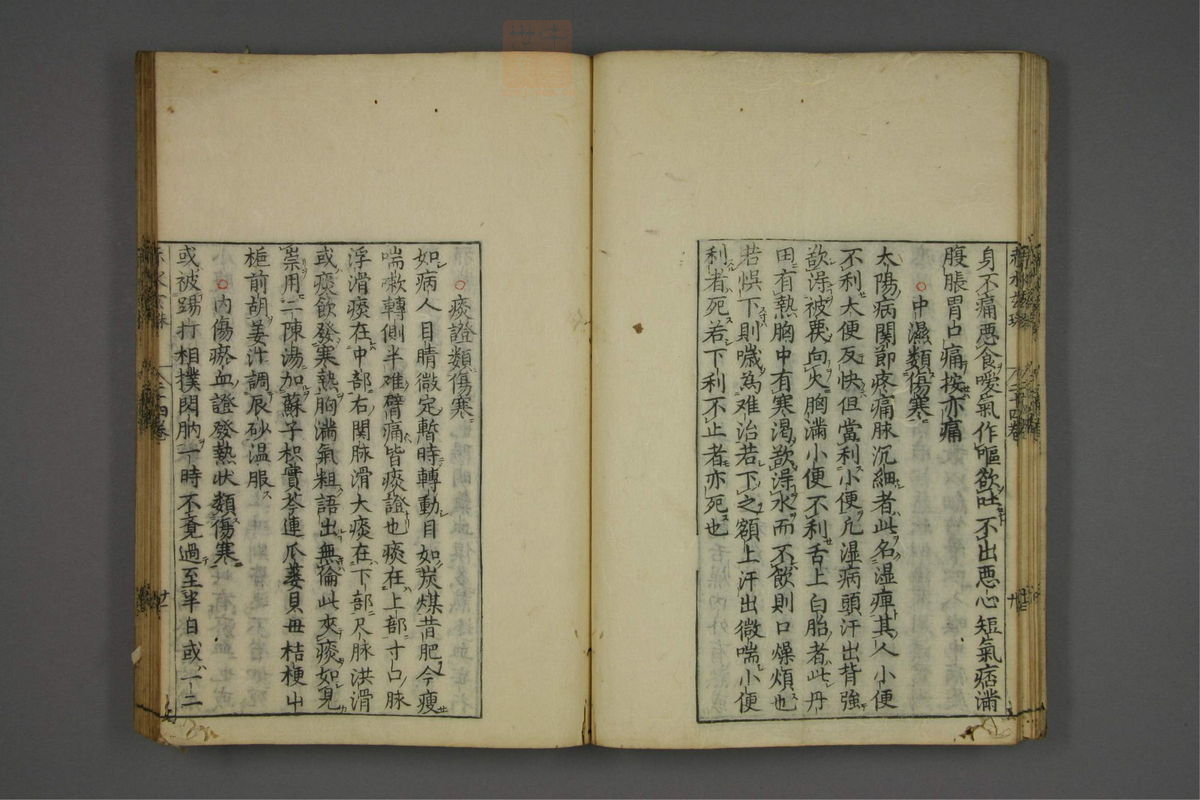 身不痛惡食噯氣作嘔欲吐不出惡心短氣痞滿
腹脹胃口痛按亦痛
中濕類傷寒
太陽病関節疼痛脉沉細者此名湿痺其人小便
不利大便反快但當利小便凢湿病頭汗出背強
欲得被覆向火胸滿小便不利舌上白胎者此丹
田有熱胸中有寒渇欲得水而不飲則口燥煩也
若悞下則噦為难治若下之額上汗出微喘小便
利者死若下利不止者亦死也
痰證類傷寒
如病人目睛微定暫時轉動目如炭煤昔肥今瘦
喘嗽轉側半难臂痛皆痰證也痰在上部寸口脉
浮滑痰在中部右関脉滑大痰在下部尺脉洪滑
或痰飲發寒熱胸滿氣粗語出無倫此夾痰如見
祟用二陳湯加蘇子枳實芩連瓜蔞貝毋桔梗山
梔前胡姜汁調辰砂温服
内傷瘀血證發熱状類傷寒
或被踢打相撲閃肭一時不竟過至半日或一二
二十四卷